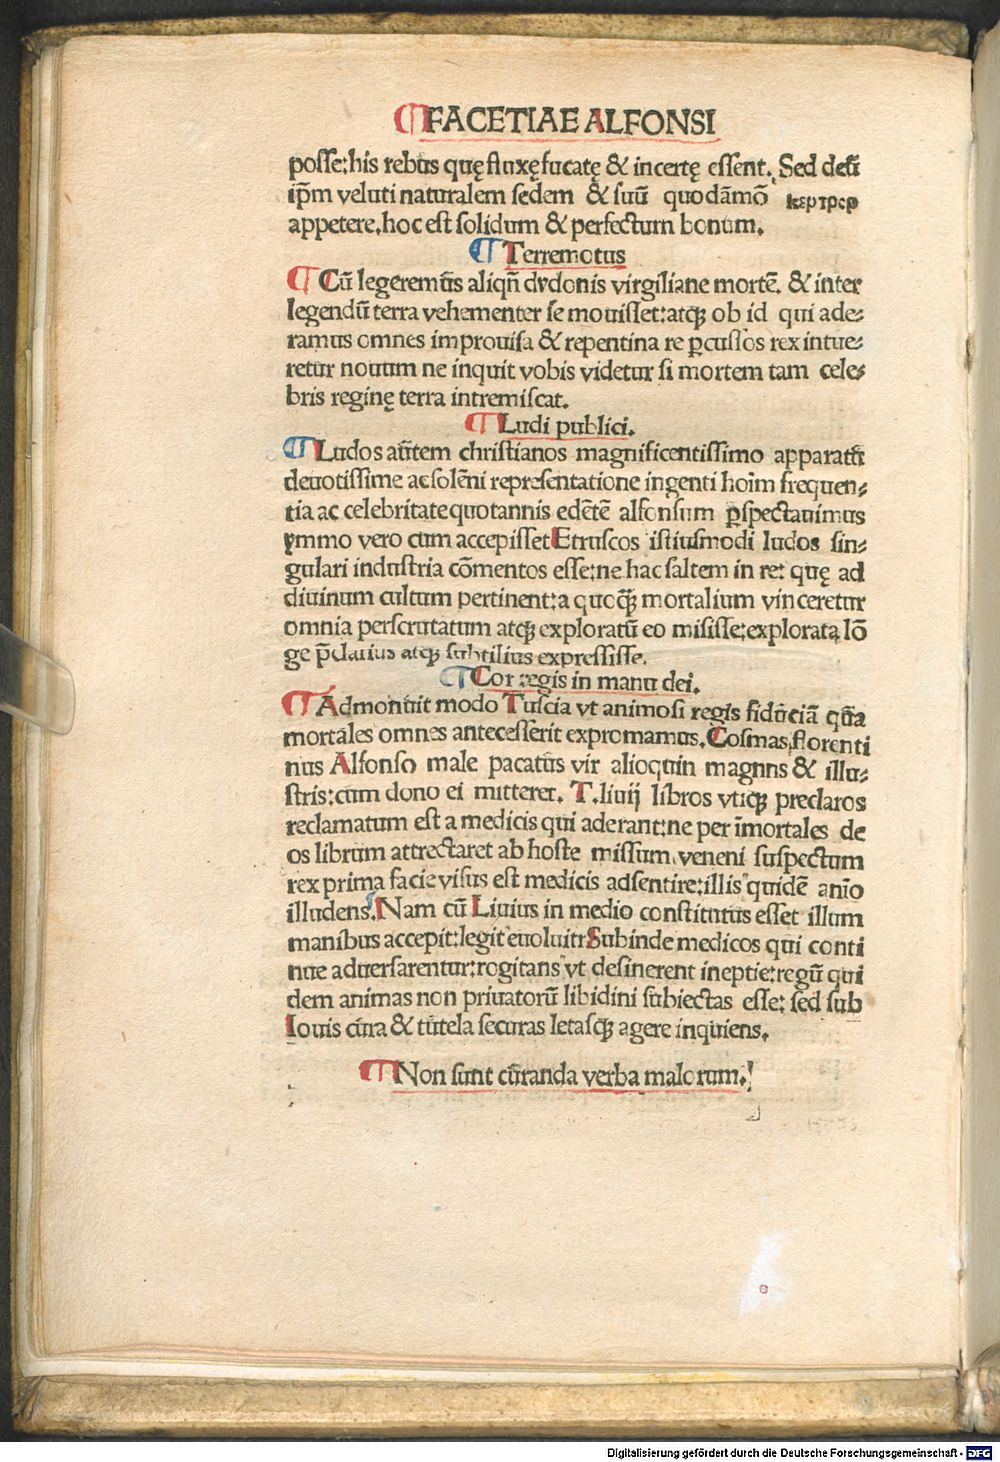 FACETIAE ALFONSI
posse:his rebus quę fluxę fucatę & incertę essent. Sed deū
ip̄m veluti naturalem sedem & suū quodāmō
appetere.hoc est solidum & perfectum bonum.
Terremotus
Cū legeremus aliqñ dydonis virgiliane mortē. & inter
legendū terra vehementer se mouisset:atqȝ ob id qui ade⸗
ramus omnes improuisa & repentina re ꝑcussos rex intue⸗
retur nouum ne inquit vobis videtur si mortem tam cele⸗
bris reginę terra intremiscat.
Ludi publici.
Ludos autem christianos magnificentissimo apparatu
deuotissime ac solēni representatione ingenti hoīm frequen⸗
tia ac celebritate quotannis edētē alfonsum ꝑspectauimus
ymmo vero cum accepisset Etruscos istiusmodi ludos sin⸗
gulari industria cōmentos esse:ne hac saltem in re: quę ad
diuinum cultum pertinent:a quoqȝ mortalium vinceretur
omnia perscrutatum atqȝ exploratū eo misisse:explorata lō
ge p̄clarius atqȝ subtilius expressisse.
Cor regis in manu dei.
Admonuit modo Tuscia vt animosi regis fiduciā qua
mortales omnes antecesserit expromamus. Cosmas florenti
nus Alfonso male pacatus vir alioquin magnus & illu⸗
stris:cum dono ei mitteret. T.liuij libros vtiqȝ preclaros
reclamatum est a medicis qui aderant:ne per īmortales de
os librum attrectaret ab hoste missum veneni suspectum
rex prima facie visus est medicis adsentire:illis quidē anīo
illudens. Nam cū Liuius in medio constitutus esset illum
manibus accepit:legit euoluit: Subinde medicos qui conti
nue aduersarentur:rogitans vt desinerent ineptie:regū qui
dem animas non priuatorū libidini subiectas esse: sed sub
Iouis cura & tutela securas letasqȝ agere inquiens.
Non sunt curanda verba malorum.
Digitalisierung gefördert durch die Deutsche Forschungsgemeinschaft - DFG